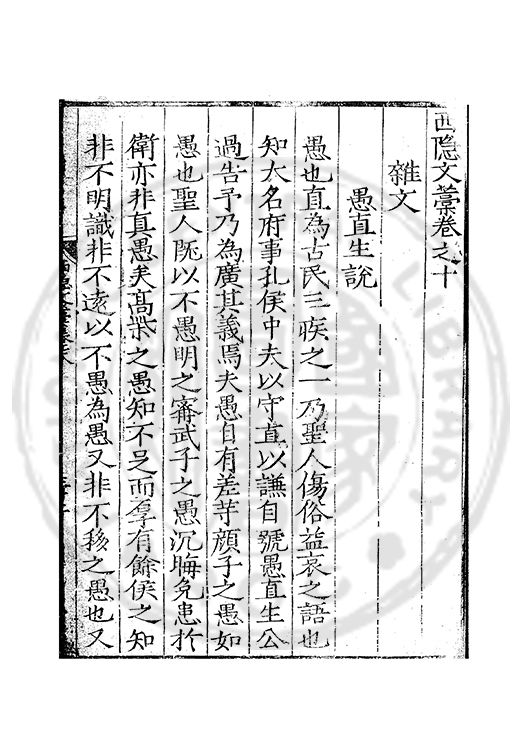 西隠文藁卷之十
雜文
愚直生說
愚也直為古民三疾之一乃聖人傷俗益衰之語也
知大名府事孔侯中夫以守直以謙自號愚直生公
過告予乃為廣其義焉夫愚自有差等顔子之愚如
愚也聖人既以不愚明之甯武子之愚沉晦免患於
衛亦非真愚矣高柴之愚知不足而厚有餘侯之知
非不明識非不遠以不愚為愚又非不移之愚也又